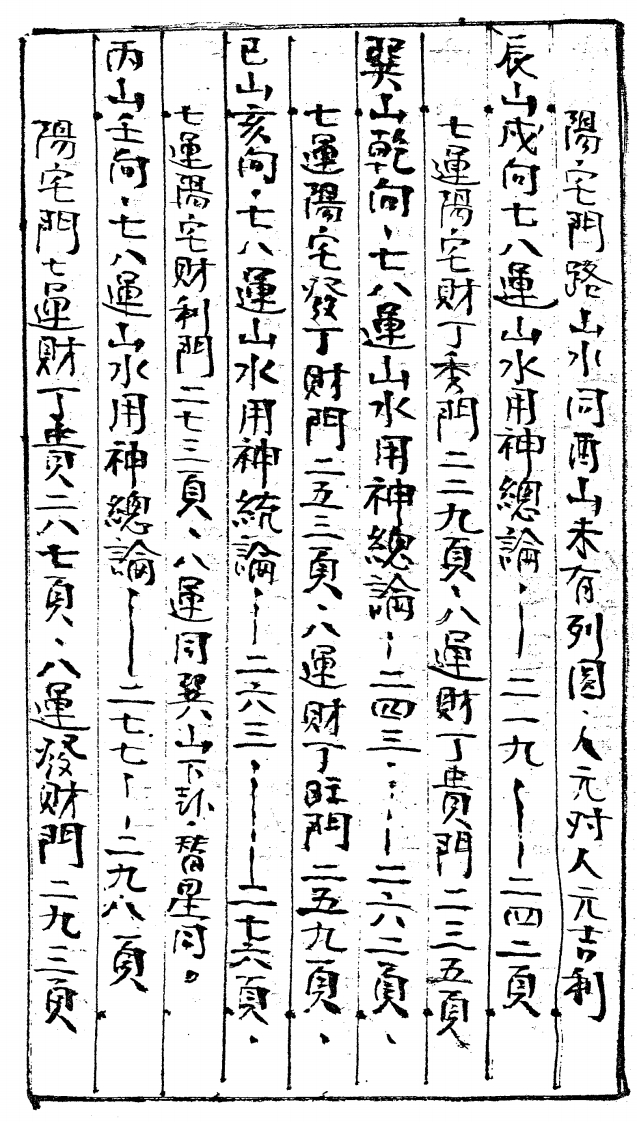 陽宅門路山水同酉山未有列圖、人元对人元吉利
辰山戍向七八運山水用神總論·——二一九——二四二頁
七運陽宅財丁秀門二二九頁、八運財丁貴門二三五頁
巽山乾向、七八運山水用神總論·—二四三····—二六二頁、
七運陽宅發丁財門二五三頁、八運財丁旺門二五九頁、
巳山亥向·七八運山水用神統論·—二六三·———二七六頁、
七運陽宅財利門二七三頁、八運同巽山下卦·替星同。
丙山壬向·七八運山水用神總論·——二七七——二九八頁
陽宅門七運財丁貴二八七頁、八運發財門二九三頁